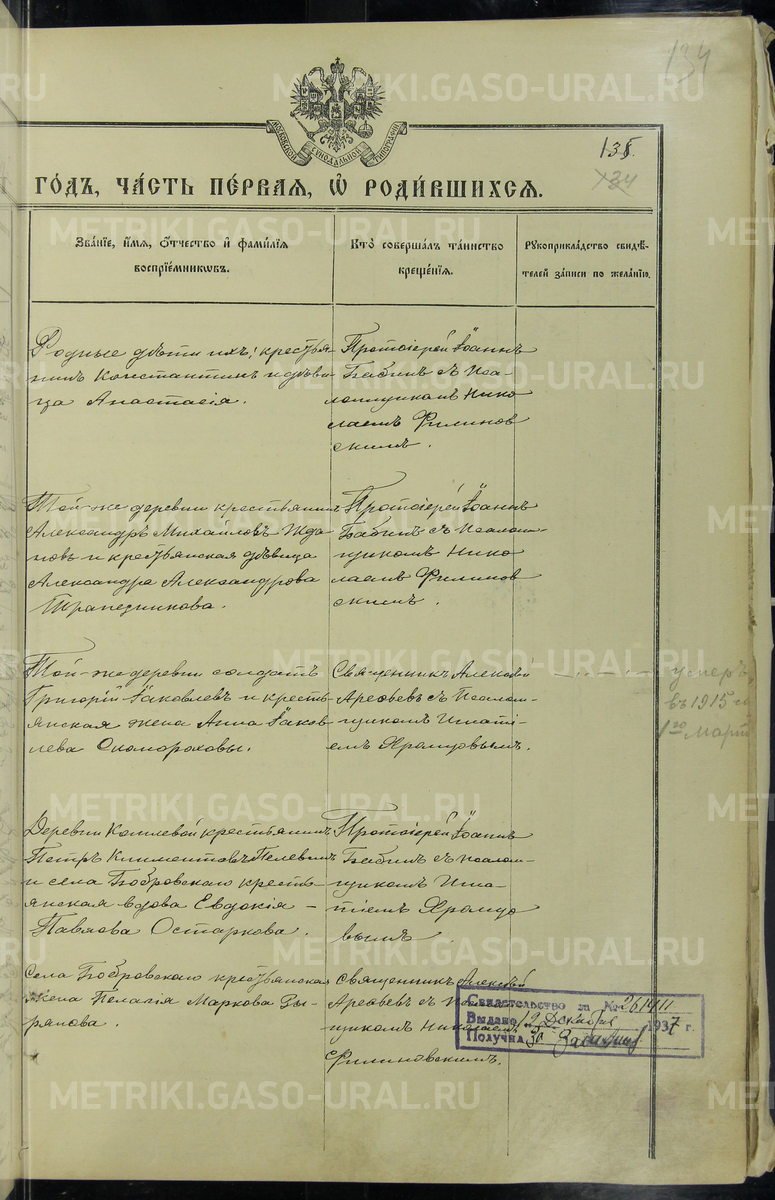 134
МОСКОВСКОЙ СѴНОДАЛЬНОЙ ТИПОГРАФІИ
135.
134
ГО́ДЪ, ЧА́СТЬ ПЕ́РВАЯ, Ѡ҆ РОДИ́ВШИХСЯ.
Зва́нїе, и҆́мя, ѻ҆́тчество и҆ фами́лїя
воспрїе́мникѡвъ.
Кто̀ соверша́лъ та́инство
креще́нїя.
Рꙋкоприкла́дство свидѣ́-
телей за́писи по жела́нїю.
Родные дѣти ихъ; крестья
нинъ Константинъ и дѣви
ца Анастасія.
Протоіерей Іоаннъ
Бабинъ съ Пса-
ломщикомъ Нико
лаемъ Филинов
скимъ.
Той-же деревни крестьянинъ
Александръ Михайловъ Жда
новъ и крестьянская дѣвица
Александра Александрова
Трапезникова.
Протоіерей Іоаннъ
Бабинъ съ Псалом-
щикомъ Нико
лаемъ Филинов
скимъ.
Той-же деревни солдатъ
Григорій Іаковлевъ и кресть-
янская жена Анна Іаков-
лева Скомороховы.
Священникъ Алексѣй
Арефьевъ съ Псалом-
щикомъ Игнаті-
емъ Хромцовымъ.
умеръ
въ 1915 г
1го Март
Деревни крестьянинъ
Петръ Климентовъ Пелевинъ
и села Бобровскаго кресть-
янская вдова Евдокія -
Павлова Остаркова.
Протоіерей Іоаннъ
Бабинъ съ псалом-
щикомъ Игна-
тіемъ Хромцо
вымъ.
Села Бобровскаго крестьянская
жена Пелагія Маркова Зы-
рянова.
Священникъ Алексѣй
Арефьевъ съ Псалом
щикомъ Николаемъ
Филиновскимъ.
Свидетельство за № 261911
Выдано 19 Декабря 1937 г.
Получил
METRIKI.GASO-URAL.RU
METRIKI.GASO-URAL.RU
METRIKI.GASO-URAL.RU
METRIKI.GASO-URAL.RU
METRIKI.GASO-URAL.RU
METRIKI.GASO-URAL.RU
METRIKI.GASO-URAL.RU
METRIKI.GASO-URAL.RU